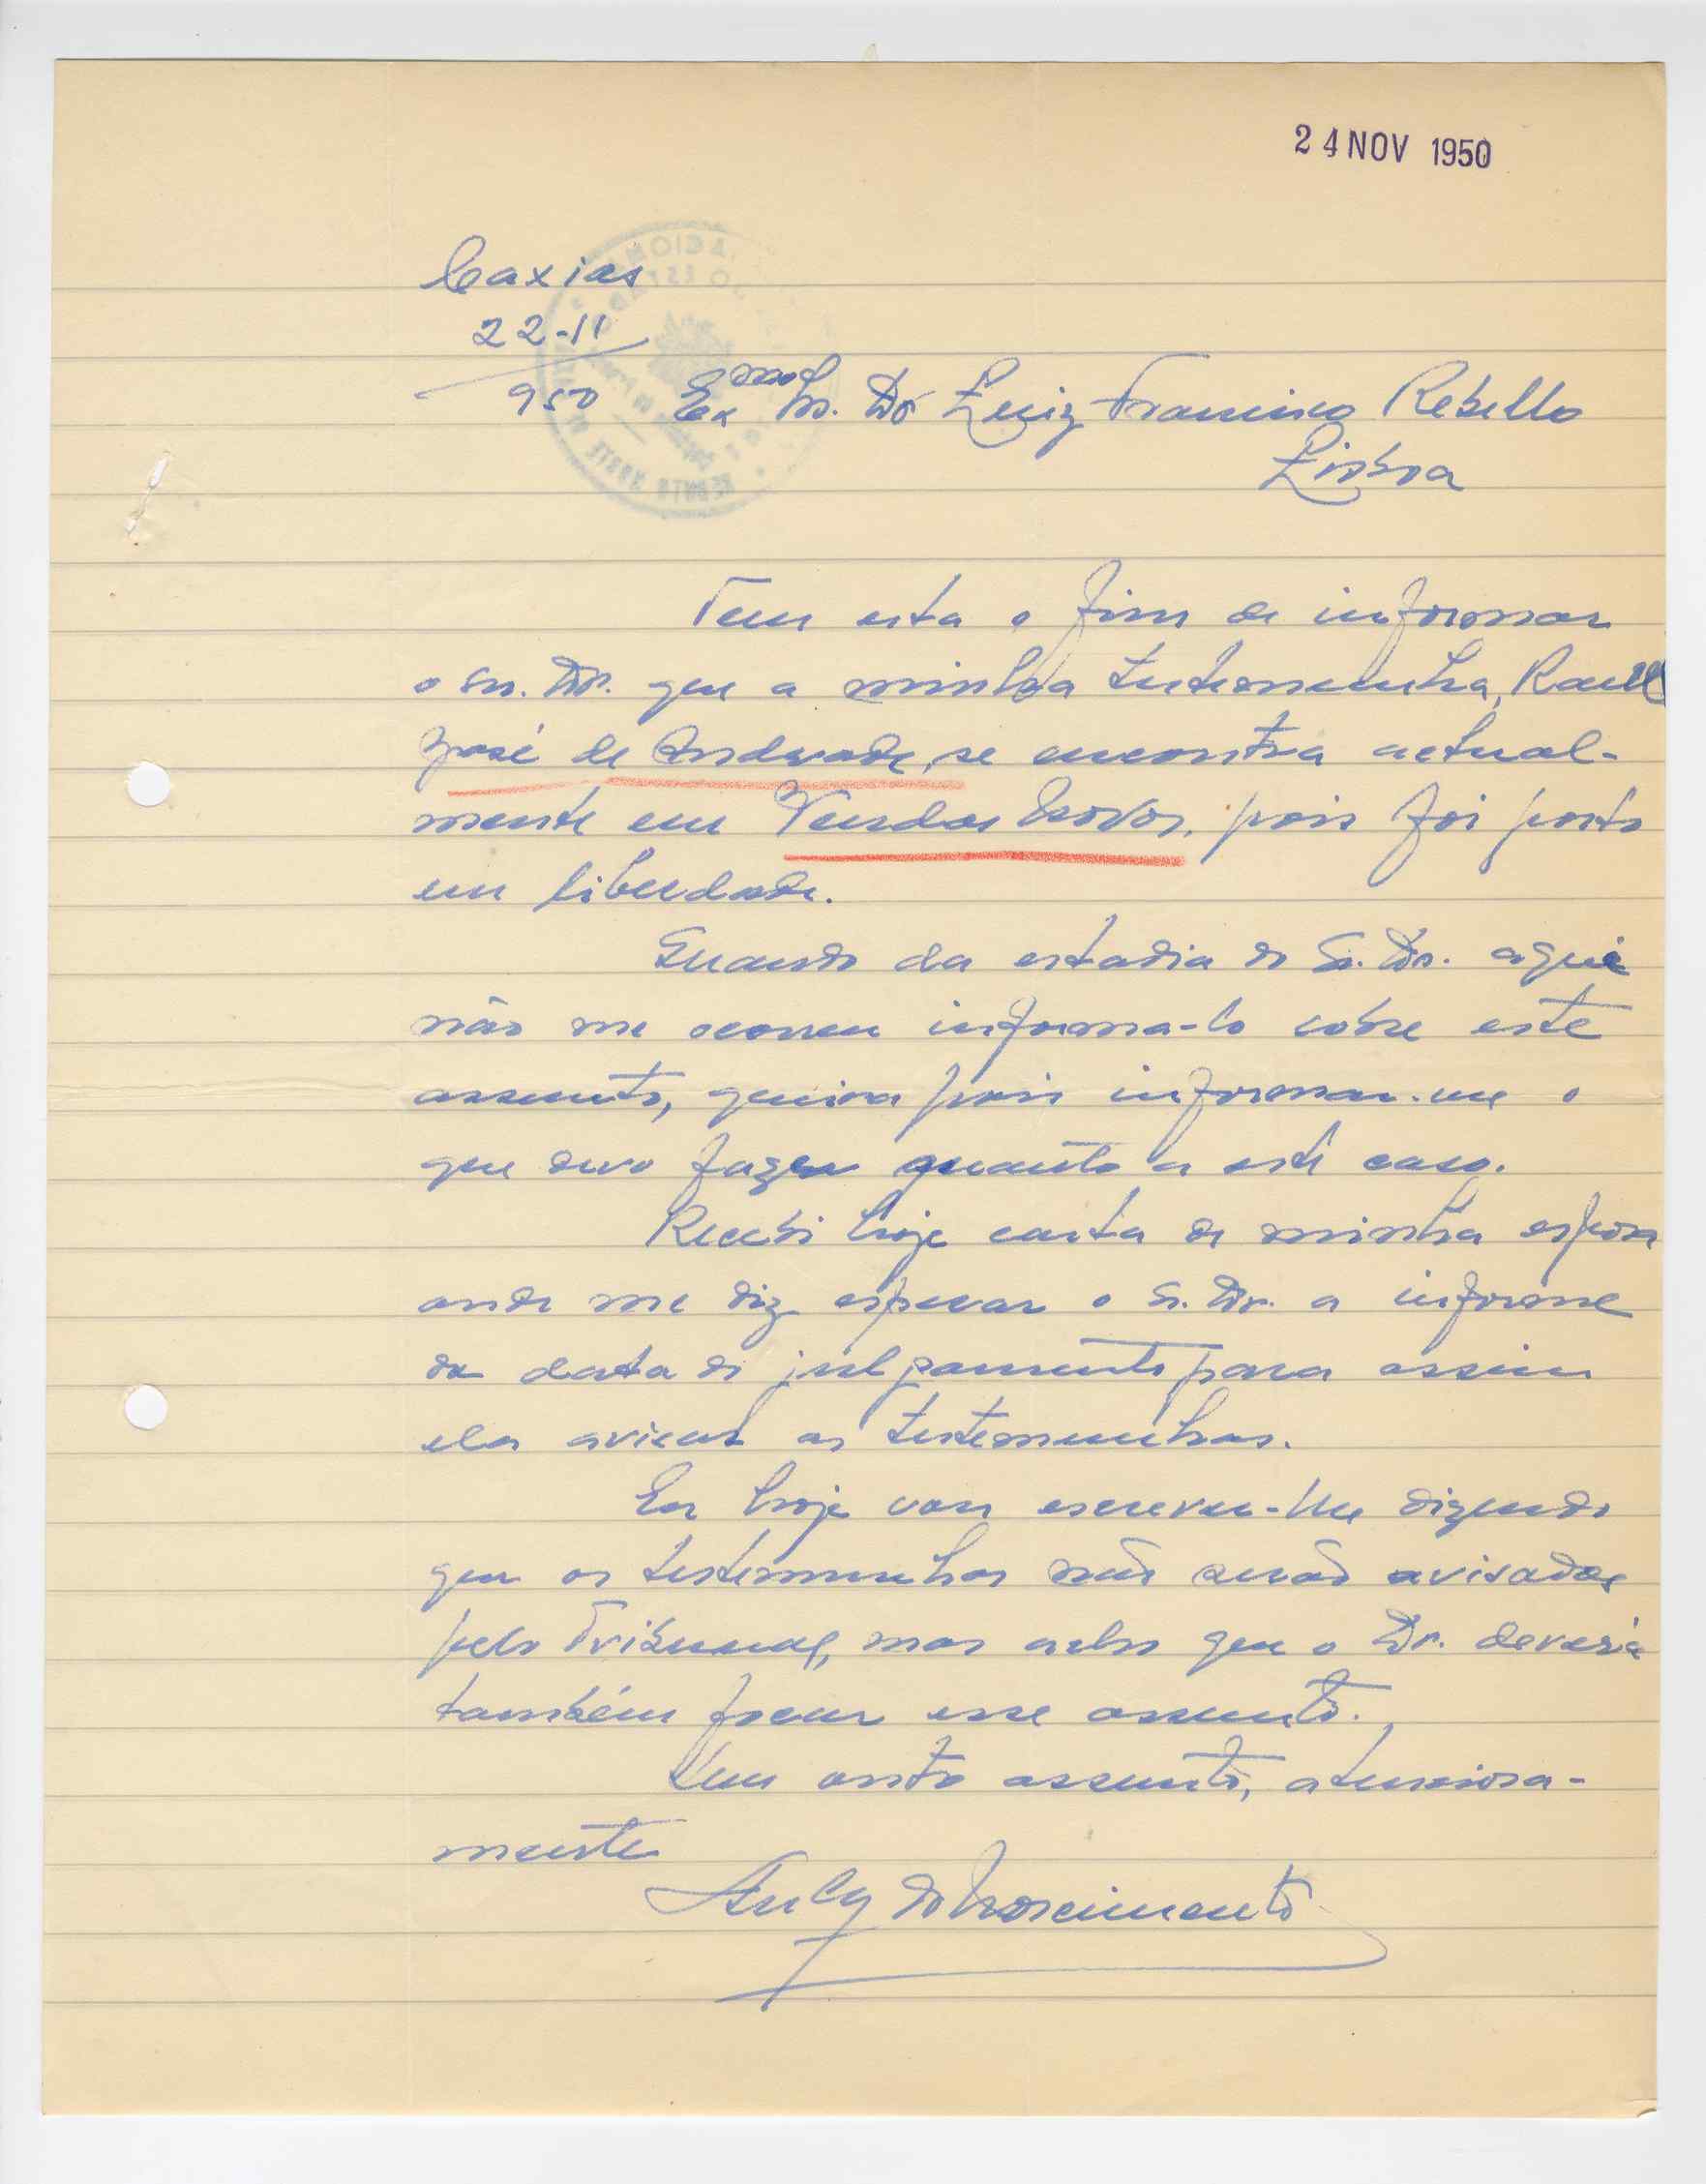 24 NOV 1950
Caxias
22-11
950 Exmo Sr. Dr Luiz Francisco Rebello
Lisboa
Tem esta o fim de informar
o Sn. Dr. que a minha testemunha, Raul
José de Andrade, se encontra actual-
mente em Vendas Novas, pois foi posto
em liberdade.
Quando da estadia do Sr. Dr. aqui
não me ocorreu informa-lo sobre este
assunto, queira pois informar-me o
que devo fazer quanto a este caso.
Recebi hoje carta de minha esposa
onde me diz esperar o Sr. Dr. a informe
da data do julgamento para assim
ela avisar as testemunhas.
Eu hoje vou escrever-lhe dizendo
que as testemunhas não serão avisadas
pelo Tribunal, mas acho que o Dr. deveria
também focar esse assunto.
Sem outro assunto, atenciosa-
mente
do Nascimento